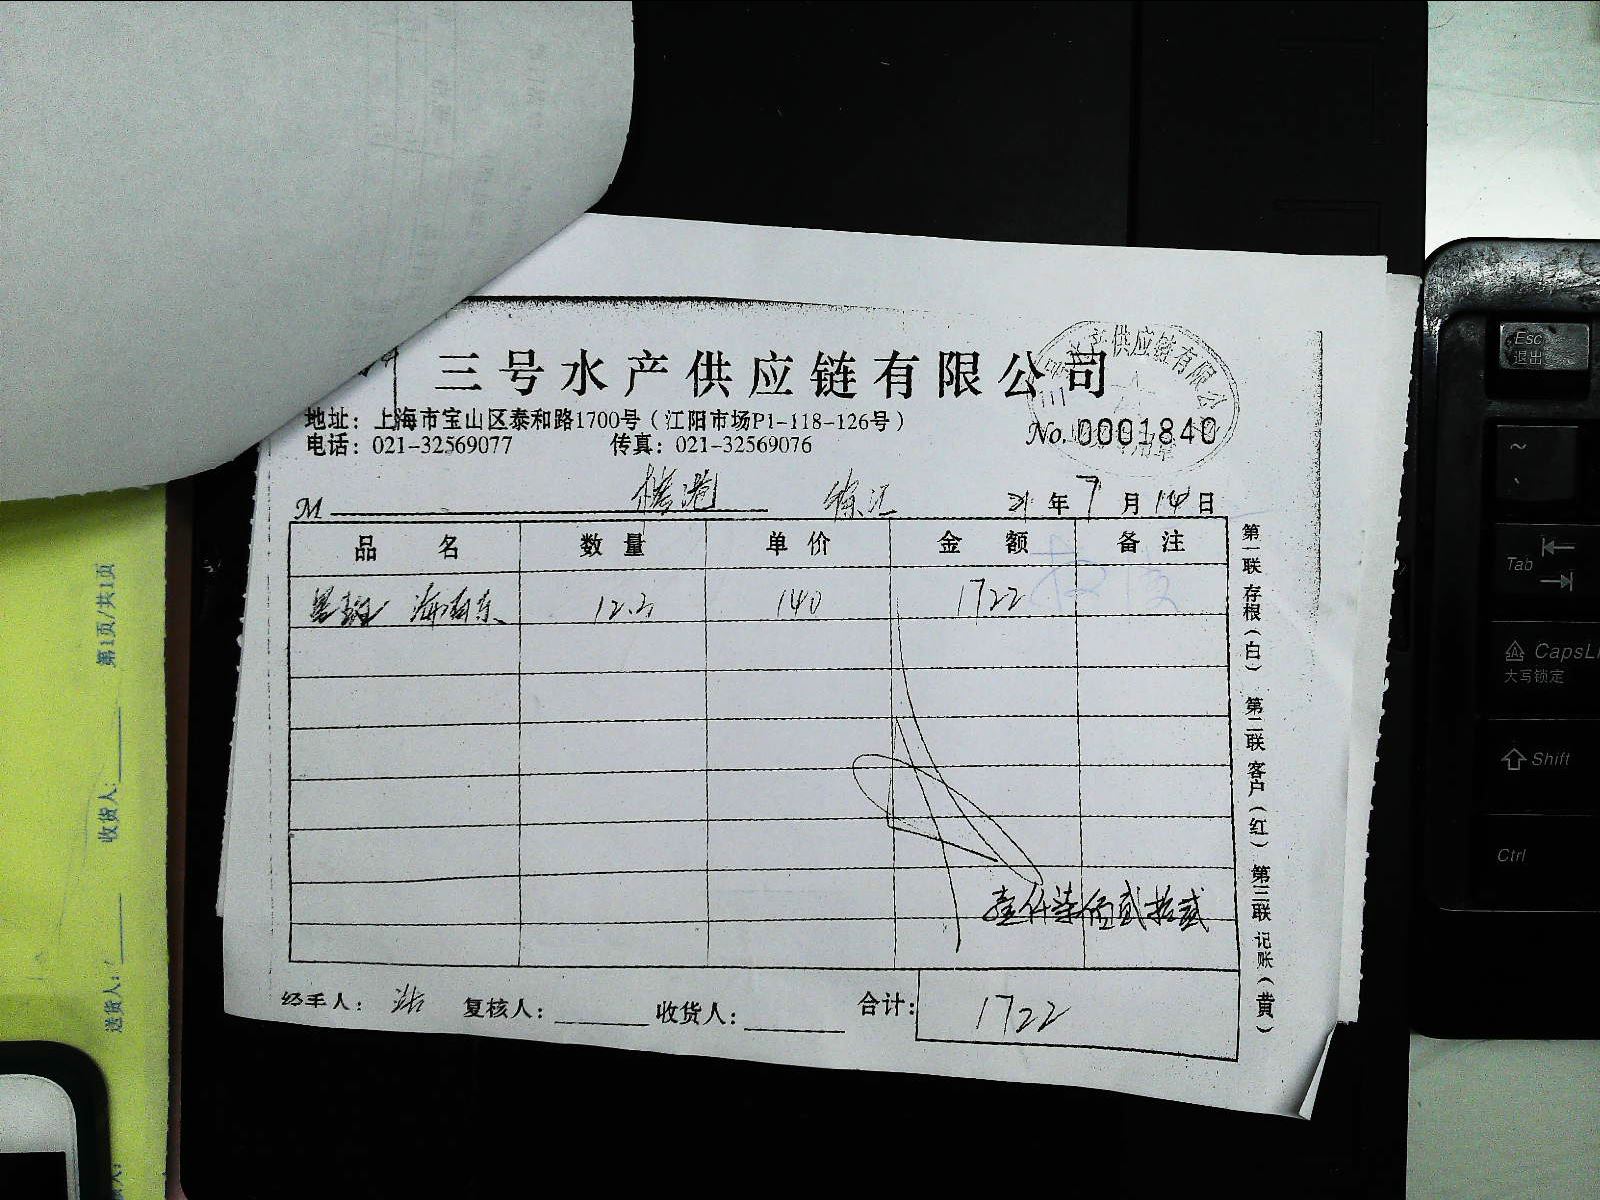 三号水产供应链有限公司
地址：上海市宝山区泰和路1700号（江阳市场P1-118-126号）
电话：021-32569077 传真：021-32569076
No. 0001840
水产供应链有限公
M 徐汇 21年7月14日
品名 数量 单价 金额 备注
12.3 140 1722
壹仟柒佰贰拾贰
经手人： 复核人： 收货人： 合计： 1722
第一联 存根（白） 第二联 客户（红） 第三联 记账（黄）
第1页/共1页
收货人：
送货人：
Esc
退出
~
Tab
CapsL
大写锁定
Shift
Ctrl